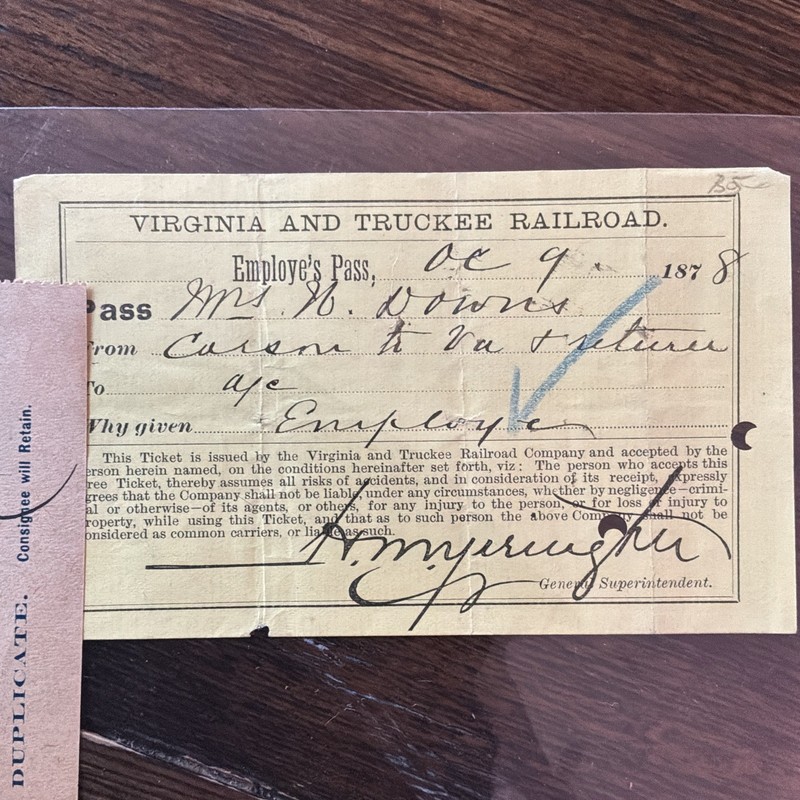 35
VIRGINIA AND TRUCKEE RAILROAD.
Employe's Pass, Oc 9. 1878
Pass Mrs. N. Downs
From Carson to Va & return
To a/c
Why given Employe
This Ticket is issued by the Virginia and Truckee Railroad Company and accepted by the
erson herein named, on the conditions hereinafter set forth, viz: The person who accepts this
ree Ticket, thereby assumes all risks of accidents, and in consideration of its receipt, expressly
grees that the Company shall not be liable, under any circumstances, whether by negligence—crimi-
al or otherwise—of its agents, or others, for any injury to the person, or for loss or injury to
roperty, while using this Ticket, and that as to such person the above Company shall not be
onsidered as common carriers, or liable as such.
H. M. Yerington
General Superintendent.
DUPLICATE. Consignee will Retain.